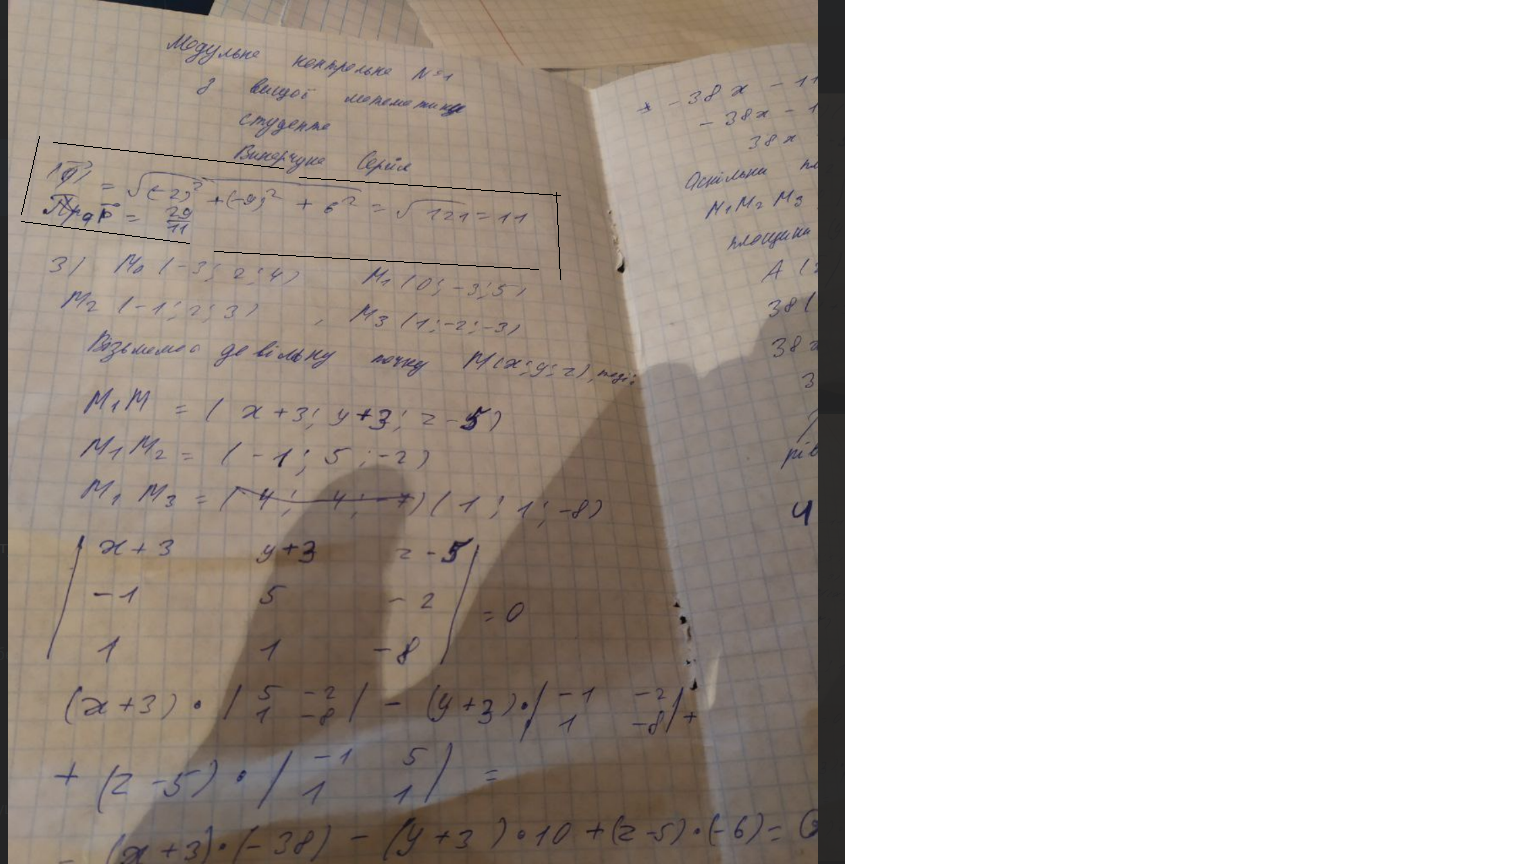 Модульна контрольна №1
з вищої математики
студента
Винарчука Сергія
|q| = √(-2)² + (-9)² + 6² = √121 = 11
Пр q P = 29/11
3) M₀ (-3; 2; 4) M₁ (0; -3; 5)
M₂ (-1; 2; 3) , M₃ (1; -2; -3)
Візьмемо довільну точку M(x; y; z), тоді:
M₁M = (x+3; y+3; z-5)
M₁M₂ = (-1; 5; -2)
M₁M₃ = (4; 4; -7) (1; 1; -8)
| x+3 y+3 z-5 |
| -1 5 -2 | = 0
| 1 1 -8 |
(x+3) · | 5 -2 | - (y+3) · | -1 -2 | +
| 1 -8 | | 1 -8 |
+ (z-5) · | -1 5 | =
| 1 1 |
= (x+3)·(-38) - (y+3)·10 + (z-5)·(-6) = 0
-38x - 11
-38x - 1
38x
Оскільки пл
M₁M₂M₃
площина
A (
38(
38
3
рів
4